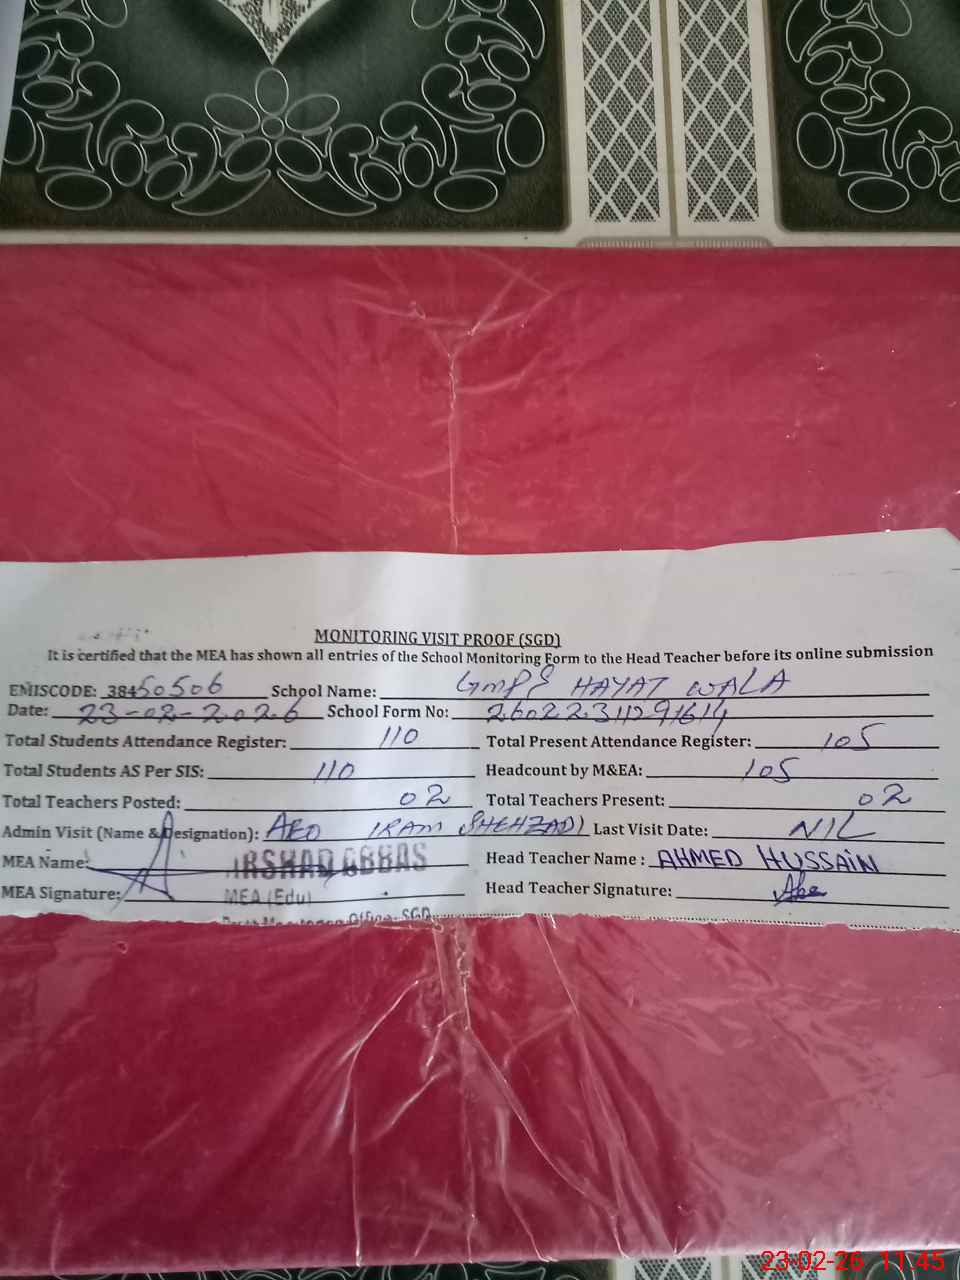 MONITORING VISIT PROOF (SGD)
It is certified that the MEA has shown all entries of the School Monitoring Form to the Head Teacher before its online submission
EMISCODE: 38450506 School Name: GMPS HAYAT WALA
Date: 23-02-2026 School Form No:
Total Students Attendance Register: 110 Total Present Attendance Register: 105
Total Students AS Per SIS: 110 Headcount by M&EA: 105
Total Teachers Posted: 02 Total Teachers Present: 02
Admin Visit (Name & Designation): AEO IRAM SHEHZADI Last Visit Date: NIL
MEA Name: IRSHAD ABBAS Head Teacher Name : AHMED HUSSAIN
MEA Signature: MEA (Edu) Head Teacher Signature:
Office, SGD
23-02-26 11:45